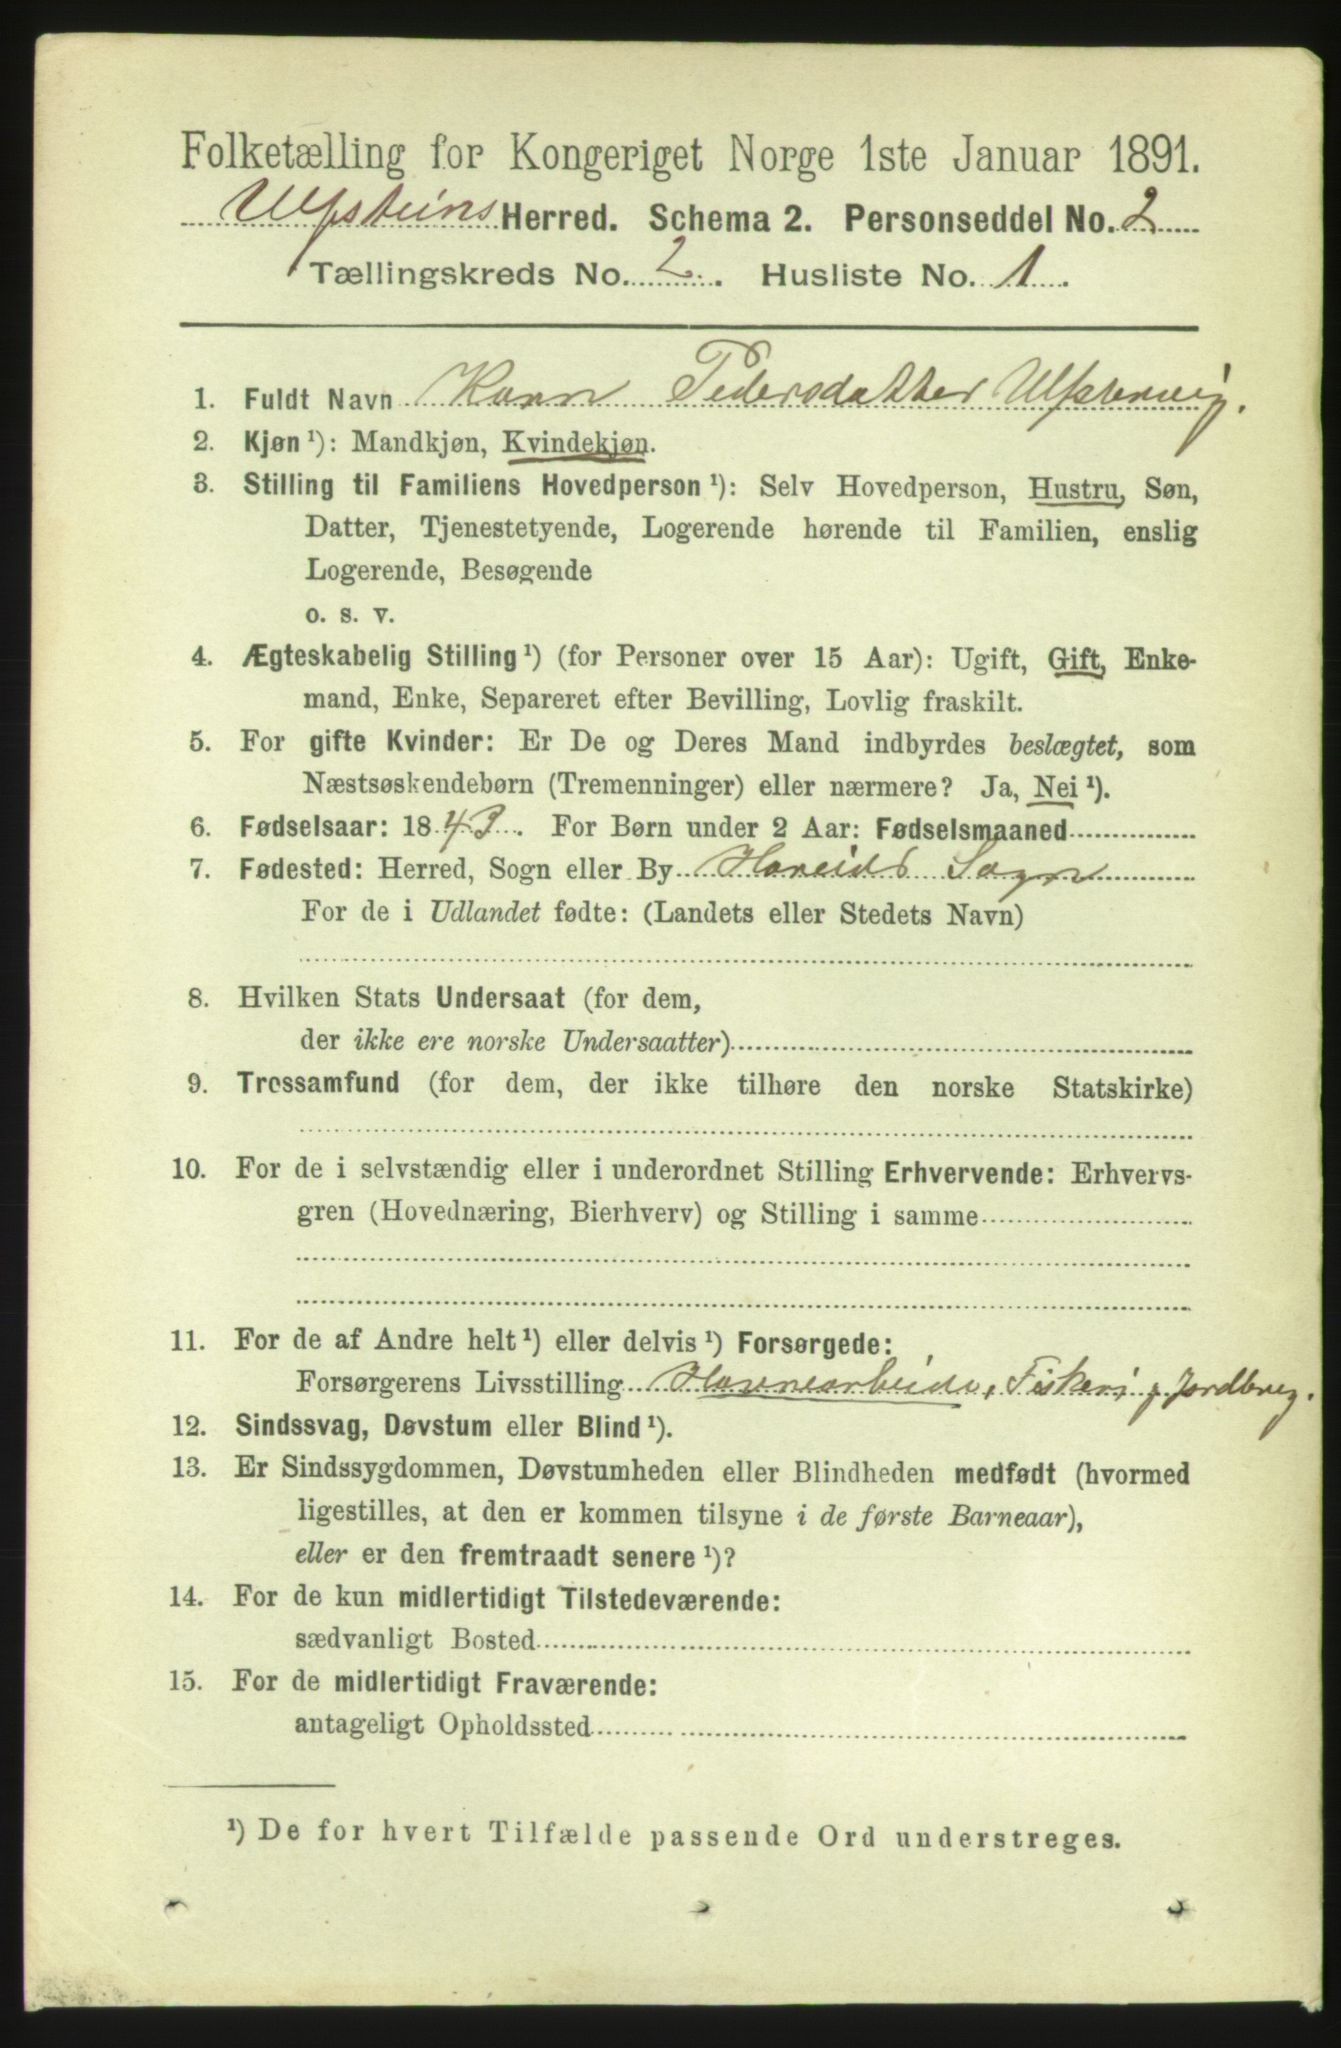 Folketælling for Kongeriget Norge 1ste Januar 1891.
Ulfsteins Herred. Schema 2. Personseddel No. 2
Tællingskreds No. 2. Husliste No. 1.
1. Fuldt Navn Karn Pedersdatter Ulfstenvig.
2. Kjøn ¹): Mandkjøn, Kvindekjøn.
3. Stilling til Familiens Hovedperson ¹): Selv Hovedperson, Hustru, Søn,
Datter, Tjenestetyende, Logerende hørende til Familien, enslig
Logerende, Besøgende
o. s. v.
4. Ægteskabelig Stilling ¹) (for Personer over 15 Aar): Ugift, Gift, Enke-
mand, Enke, Separeret efter Bevilling, Lovlig fraskilt.
5. For gifte Kvinder: Er De og Deres Mand indbyrdes beslægtet, som
Næstsøskendebørn (Tremenninger) eller nærmere? Ja, Nei ¹).
6. Fødselsaar: 1843. For Børn under 2 Aar: Fødselsmaaned
7. Fødested: Herred, Sogn eller By Hareids Sogn
For de i Udlandet fødte: (Landets eller Stedets Navn)
8. Hvilken Stats Undersaat (for dem,
der ikke ere norske Undersaatter)
9. Trossamfund (for dem, der ikke tilhøre den norske Statskirke)
10. For de i selvstændig eller i underordnet Stilling Erhvervende: Erhvervs-
gren (Hovednæring, Bierhverv) og Stilling i samme
11. For de af Andre helt ¹) eller delvis ¹) Forsørgede:
Forsørgerens Livsstilling Havnearbeide, Fiskeri, g Jordbrug.
12. Sindssvag, Døvstum eller Blind ¹).
13. Er Sindssygdommen, Døvstumheden eller Blindheden medfødt (hvormed
ligestilles, at den er kommen tilsyne i de første Barneaar),
eller er den fremtraadt senere ¹)?
14. For de kun midlertidigt Tilstedeværende:
sædvanligt Bosted
15. For de midlertidigt Fraværende:
antageligt Opholdssted
¹) De for hvert Tilfælde passende Ord understreges.